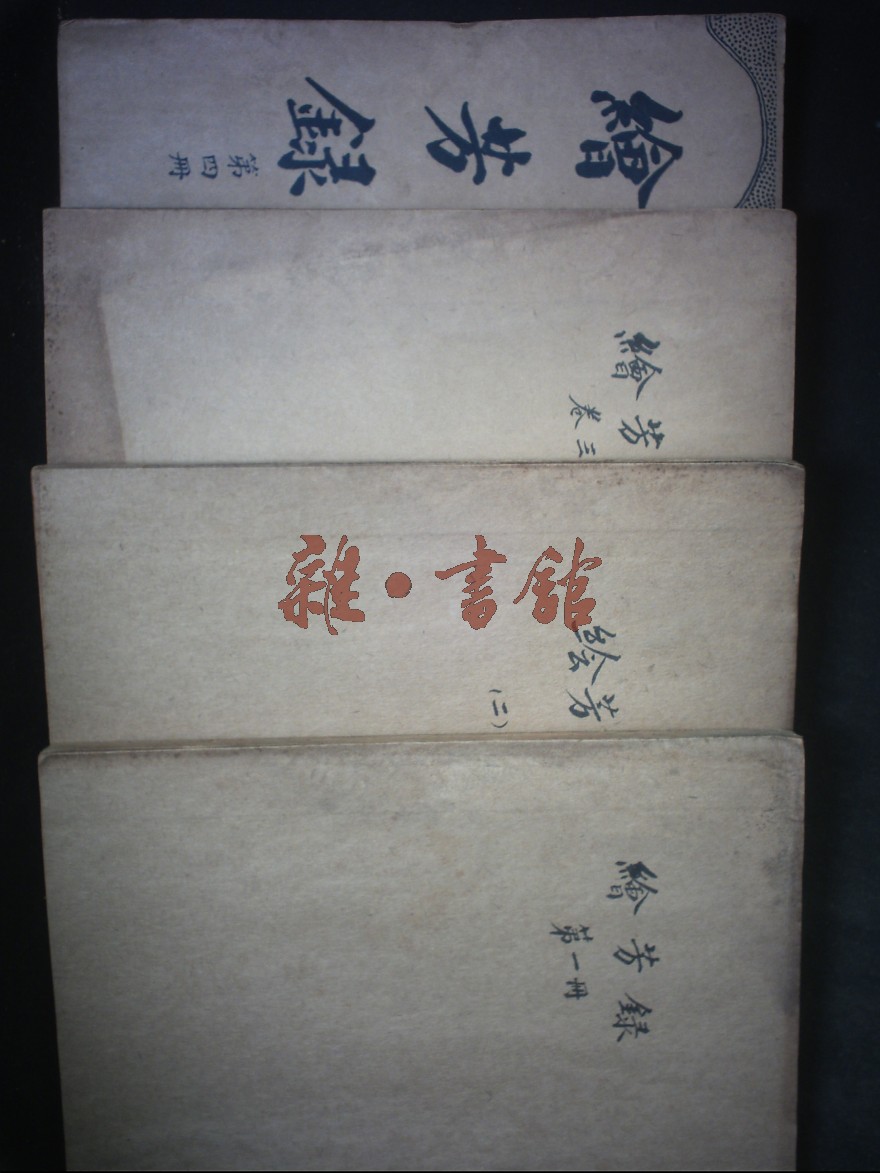 繪芳錄
第四冊
繪芳
卷三
雜·書館
绘芳
(二)
繪芳録
第一冊